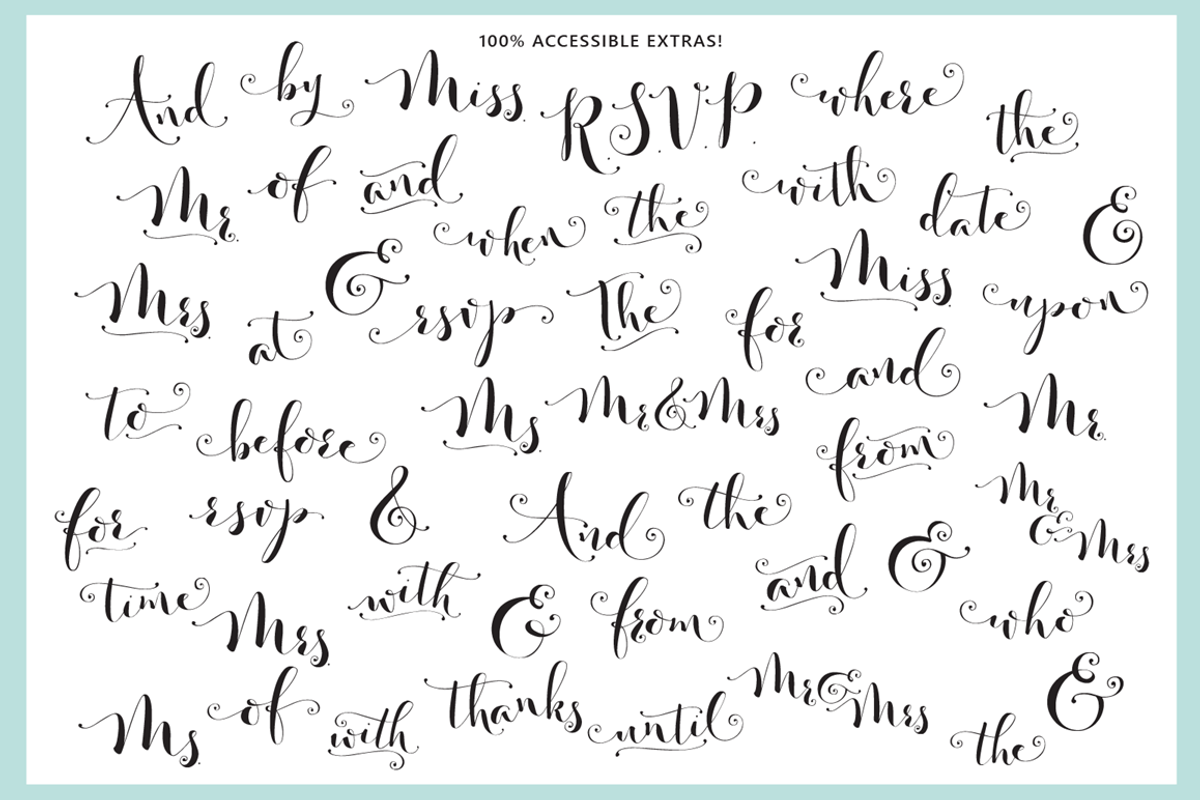 100% ACCESSIBLE EXTRAS!
And by Miss. R.S.V.P. where the
Mr. of and when the with date &
Mrs. at & rsvp The for Miss. upon
to before Ms. Mr&Mrs and from Mr.
for rsvp & And the and & Mr & Mrs
time Mrs. with & from who
Ms. of with thanks until Mr & Mrs the &